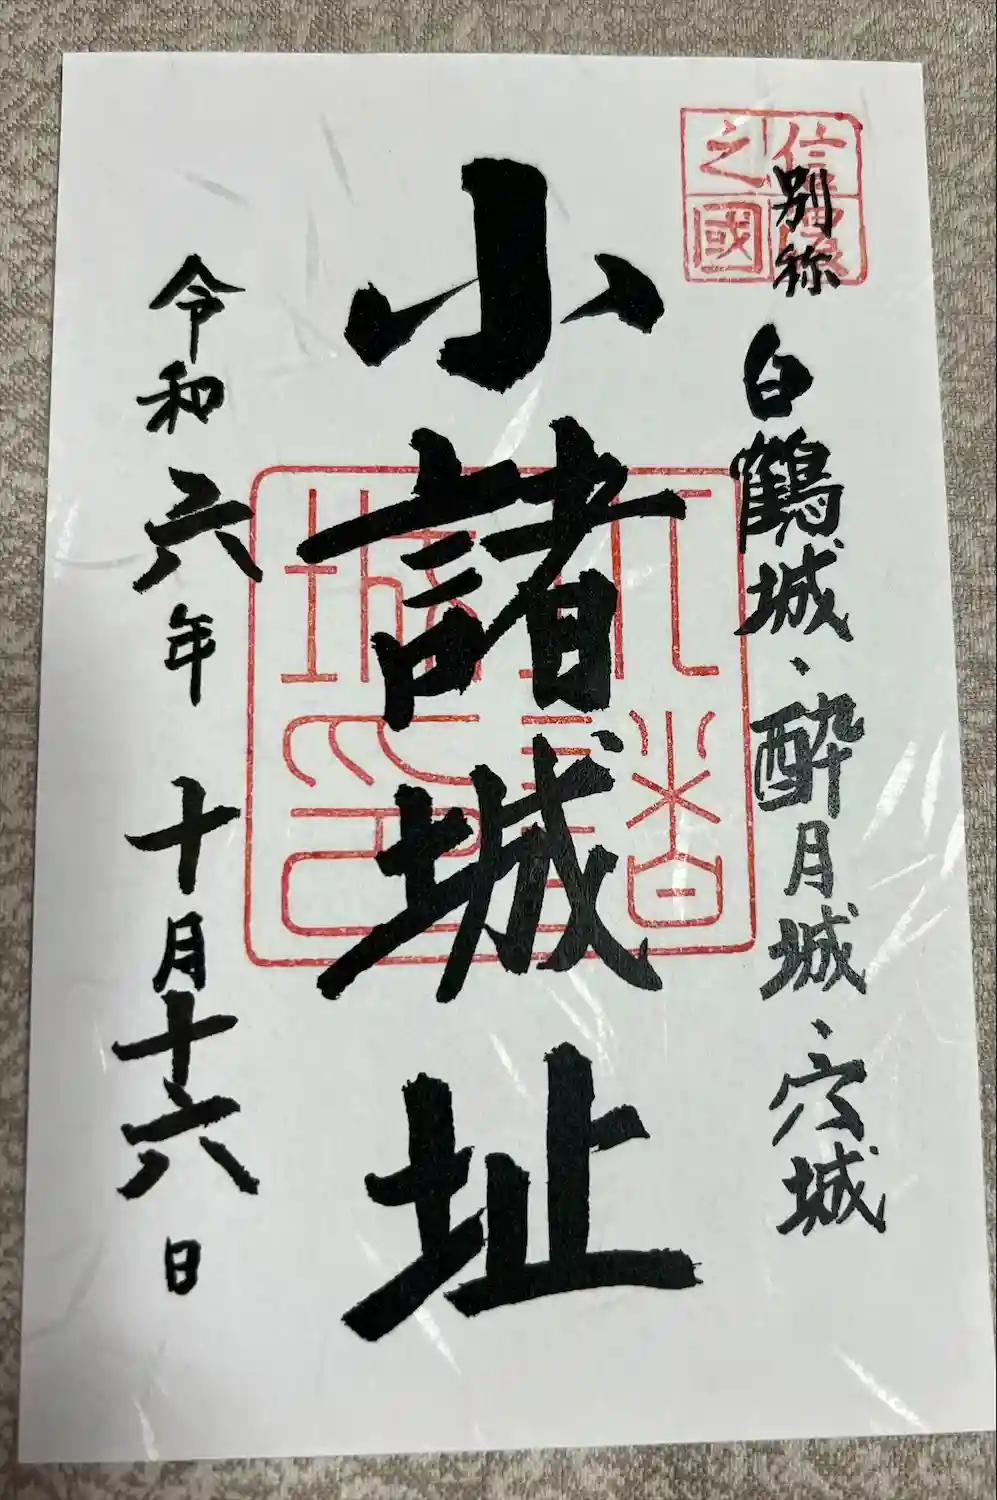 信濃之國
別称 白鶴城・酔月城・穴城
小諸城址
令和六年 十月十六日